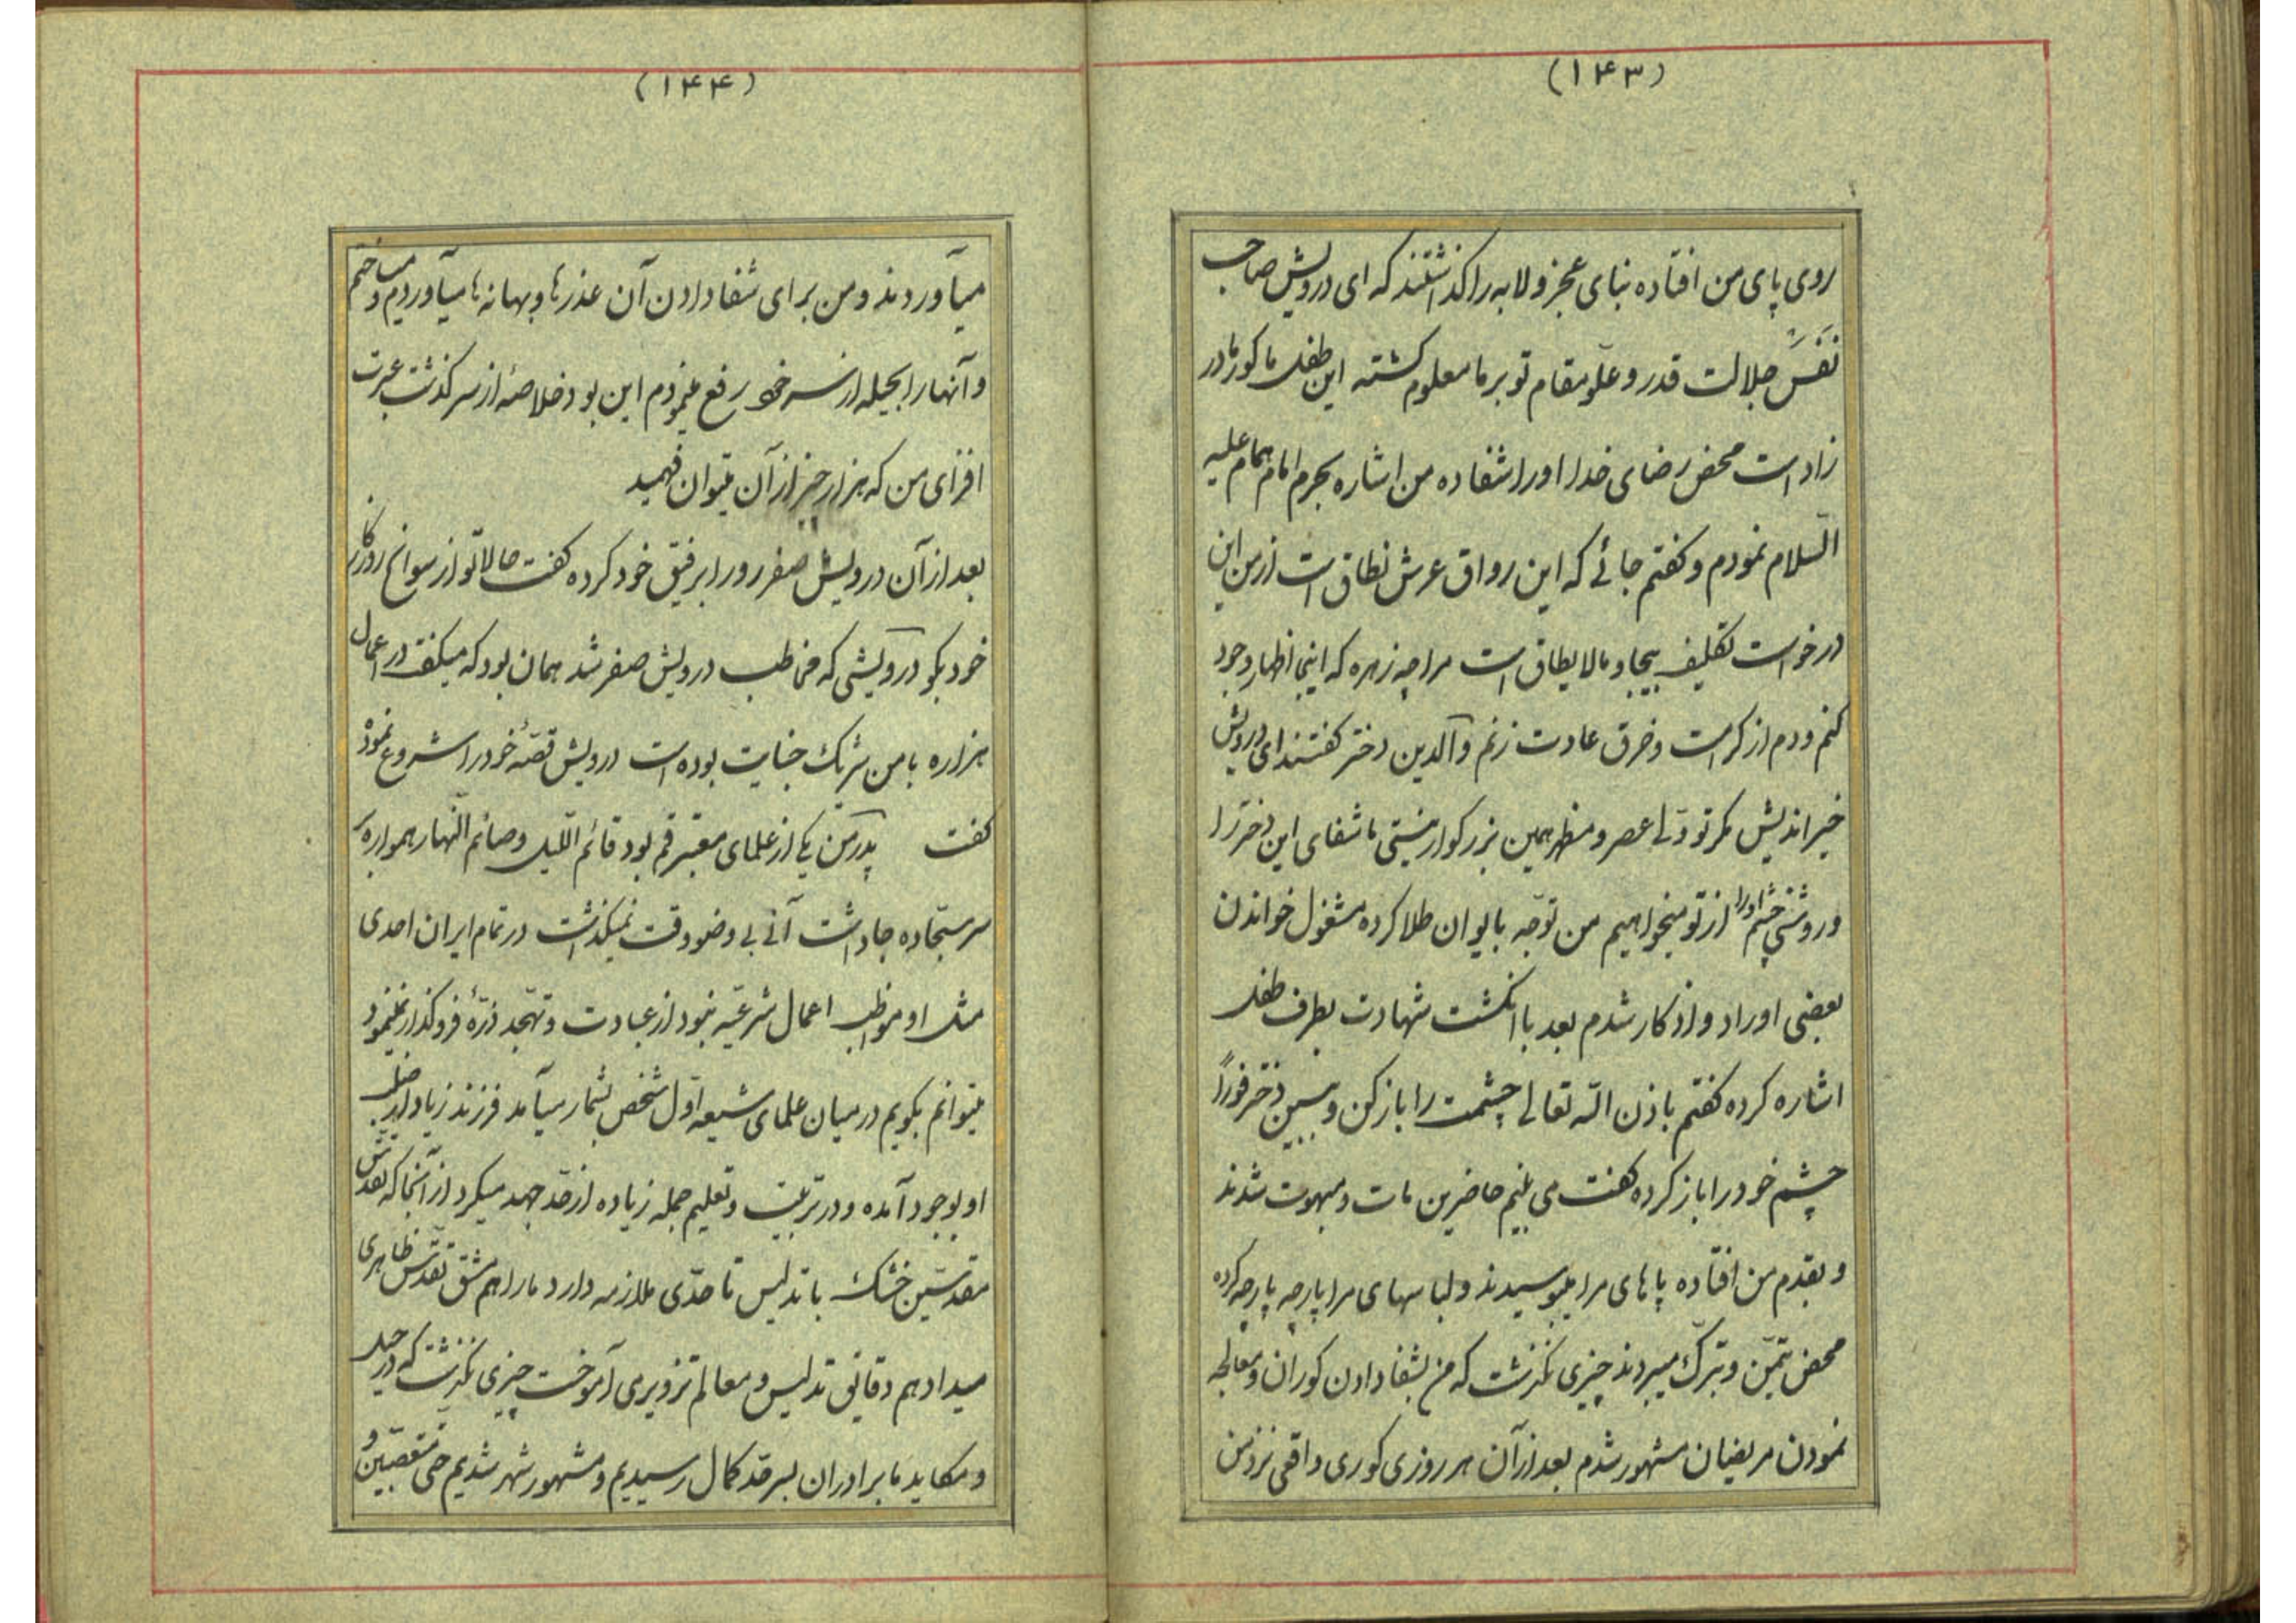 (۱۴۳)
روی پای من افتاده بنای عجز و لابه را گذاشتند که ای درویش صاحب
نَفَسْ جلالت قدر و علّو مقام تو بر ما معلوم گشته این طفل ما کور مادر
زاد است محض رضای خدا او را شفا ده من اشاره بحرم امام همام علیه
السّلام نمودم و گفتم جائے که این رواق عرش نطاق است از من این
درخواست تکلیف بیجا و مالا یطاق است مرا چه زهره که اینجا اظهار وجود
کنم و دم از کرامت و خرق عادت زنم والدین دختر گفتند ای درویش
خیر اندیش مگر تو ولے عصر و مظهر همین بزرگوار نیستی ما شفای این دختر را
و روشنی چشم او را از تو میخواهیم من توجّه بایوان طلا کرده مشغول خواندن
بعضی اوراد و اذکار شدم بعد با انگشت شهادت بطرف طفل
اشاره کرده گفتم باذن اللّه تعالی چشمت را باز کن و ببین دختر فوراً
چشم خود را باز کرده گفت می بینم حاضرین مات و مبهوت شدند
و بقدم من افتاده پاهای مرا میبوسیدند و لباسهای مرا پارچه پارچه کرده
محض تیمّن و تبرّک میبردند چیزی نگذشت که من بشفا دادن کوران و معالجه
نمودن مریضان مشهور شدم بعد از آن هر روزی کوری واقعی نزد من
(۱۴۴)
میآوردند و من برای شفا دادن آن عذرها و بهانه ها میآوردم و میساختم
و آنها را بحیله از سر خود رفع مینمودم این بود خلاصهٔ از سرگذشت عبرت
افزای من که هزار چیز از آن میتوان فهمید
بعد از آن درویش صفر رو را برفیق خود کرده گفت حالا تو از سوانح روزگار
خود بگو درویشی که مخاطب درویش صفر شد همان بود که میگفت در اعمال
هزاره با من شریک جنایت بوده است درویش قصّهٔ خود را شروع نمودْ
گفت پدر من یکے از علمای معتبر قم بود قائم اللّیل و صائم النّهار همواره
سر سجّاده جا داشت آنے بی وضو وقت نمیگذاشت در تمام ایران احدی
مثل او مواظب اعمال شرعیّه نبود از عبادت و تهجّد ذرّهٔ فروگذار نمینمود
میتوانم بگویم در میان علمای شیعه اوّل شخص بشمار میآمد فرزند زیاد از صلب
او بوجود آمده و در تربیت و تعلیم جمله زیاده از حد جهد میکرد از آنجا که تقدّس
مقدّسین خشک با تدلیس تا حدّی ملازمه دارد ما را هم مشق تقدّس ظاهری
میداد هم دقایق تدلیس و معالم تزویری آموخت چیزی نگذشت که در حیل
و مکاید ما برادران بسرحد کمال رسیدیم و مشهور شهر شدیم حتی متعصّبین و